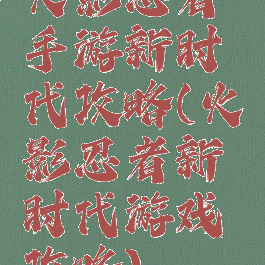 火影忍者
手游新时
代攻略(火
影忍者新
时代游戏
攻略)